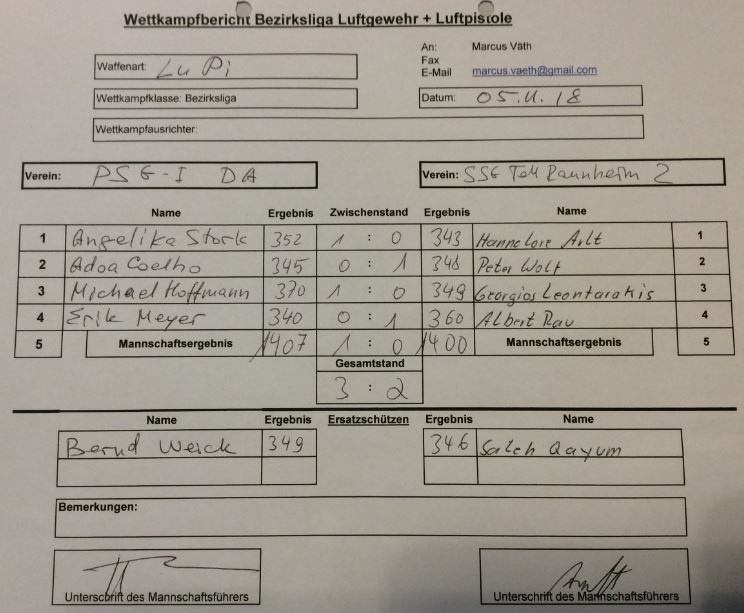 Wettkampfbericht Bezirksliga Luftgewehr + Luftpistole
An: Marcus Väth
Fax
E-Mail marcus.vaeth@gmail.com
Waffenart: LuPi
Wettkampfklasse: Bezirksliga
Datum: 05.11.18
Wettkampfausrichter:
Verein: PSG-I DA
Verein: SSG Raunheim 2
Name Ergebnis Zwischenstand Ergebnis Name
1 Angelika Stork 352 1 : 0 343 Hannelore Arlt 1
2 Coelho 345 0 : 1 348 Peter Wolf 2
3 Michael Hoffmann 370 1 : 0 349 Georgios Leontarakis 3
4 Erik Meyer 340 0 : 1 360 Albert Rau 4
5 Mannschaftsergebnis 1407 1 : 0 1400 Mannschaftsergebnis 5
Gesamtstand
3 : 2
Name Ergebnis Ersatzschützen Ergebnis Name
Bernd Weick 349 346 Saleh Qayum
Bemerkungen:
Unterschrift des Mannschaftsführers
Unterschrift des Mannschaftsführers